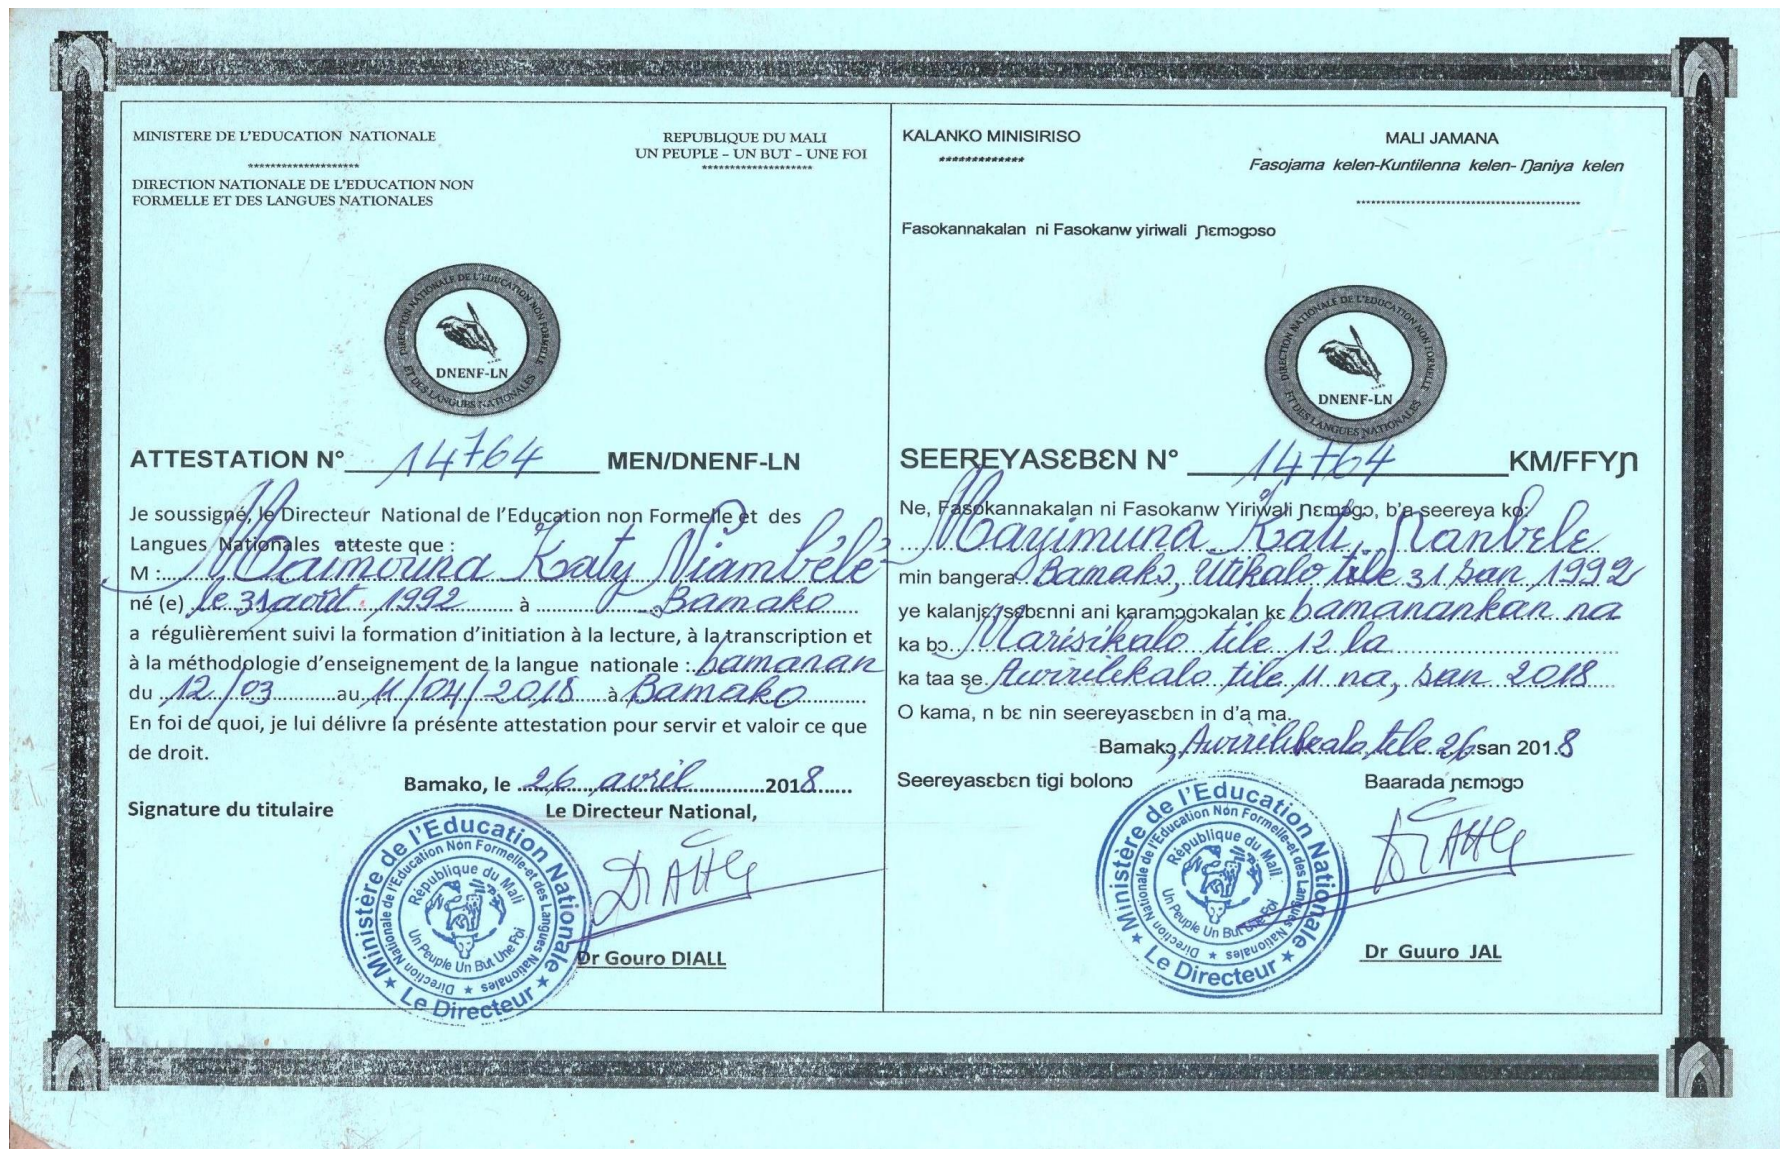 MINISTERE DE L'EDUCATION NATIONALE
********************
DIRECTION NATIONALE DE L'EDUCATION NON
FORMELLE ET DES LANGUES NATIONALES
REPUBLIQUE DU MALI
UN PEUPLE – UN BUT – UNE FOI
********************
DIRECTION NATIONALE DE L'EDUCATION NON FORMELLE
ET DES LANGUES NATIONALES
DNENF-LN
ATTESTATION N° 14764 MEN/DNENF-LN
Je soussigné, le Directeur National de l'Education non Formelle et des
Langues Nationales atteste que :
M : Maimouna Katy Niambélé
né (e) le 31 août 1992 à Bamako
a régulièrement suivi la formation d'initiation à la lecture, à la transcription et
à la méthodologie d'enseignement de la langue nationale : bamanan
du 12/03 au 11/04/2018 à Bamako
En foi de quoi, je lui délivre la présente attestation pour servir et valoir ce que
de droit.
Bamako, le 26 avril 2018
Signature du titulaire Le Directeur National,
Ministère de l'Education Nationale
Direction Nationale de l'Education Non Formelle et des Langues Nationales
République du Mali
Un Peuple Un But Une Foi
Le Directeur
Dr Gouro DIALL
KALANKO MINISIRISO
*************
MALI JAMANA
Fasojama kelen-Kuntilenna kelen- Ŋaniya kelen
Fasokannakalan ni Fasokanw yiriwali ɲɛmɔgɔso
DIRECTION NATIONALE DE L'EDUCATION NON FORMELLE
ET DES LANGUES NATIONALES
DNENF-LN
SEEREYASƐBƐN N° 14764 KM/FFYƝ
Ne, Fasokannakalan ni Fasokanw Yiriwali ɲɛmɔgɔ, b'a seereya ko:
Mayimuna Kati Ɲanbɛle
min bangera Bamakɔ, Utikalo tile 31 san 1992
ye kalanjɛ, sɛbɛnni ani karamɔgɔkalan kɛ bamanankan na
ka bɔ Marisikalo tile 12 la
ka taa se Awirilikalo tile 11 na, san 2018
O kama, n bɛ nin seereyasɛbɛn in d'a ma.
Bamakɔ, Awirilikalo tile 26 san 2018
Seereyasɛbɛn tigi bolonɔ Baarada ɲɛmɔgɔ
Ministère de l'Education Nationale
Direction Nationale de l'Education Non Formelle et des Langues Nationales
République du Mali
Un Peuple Un But Une Foi
Le Directeur
Dr Guuro JAL